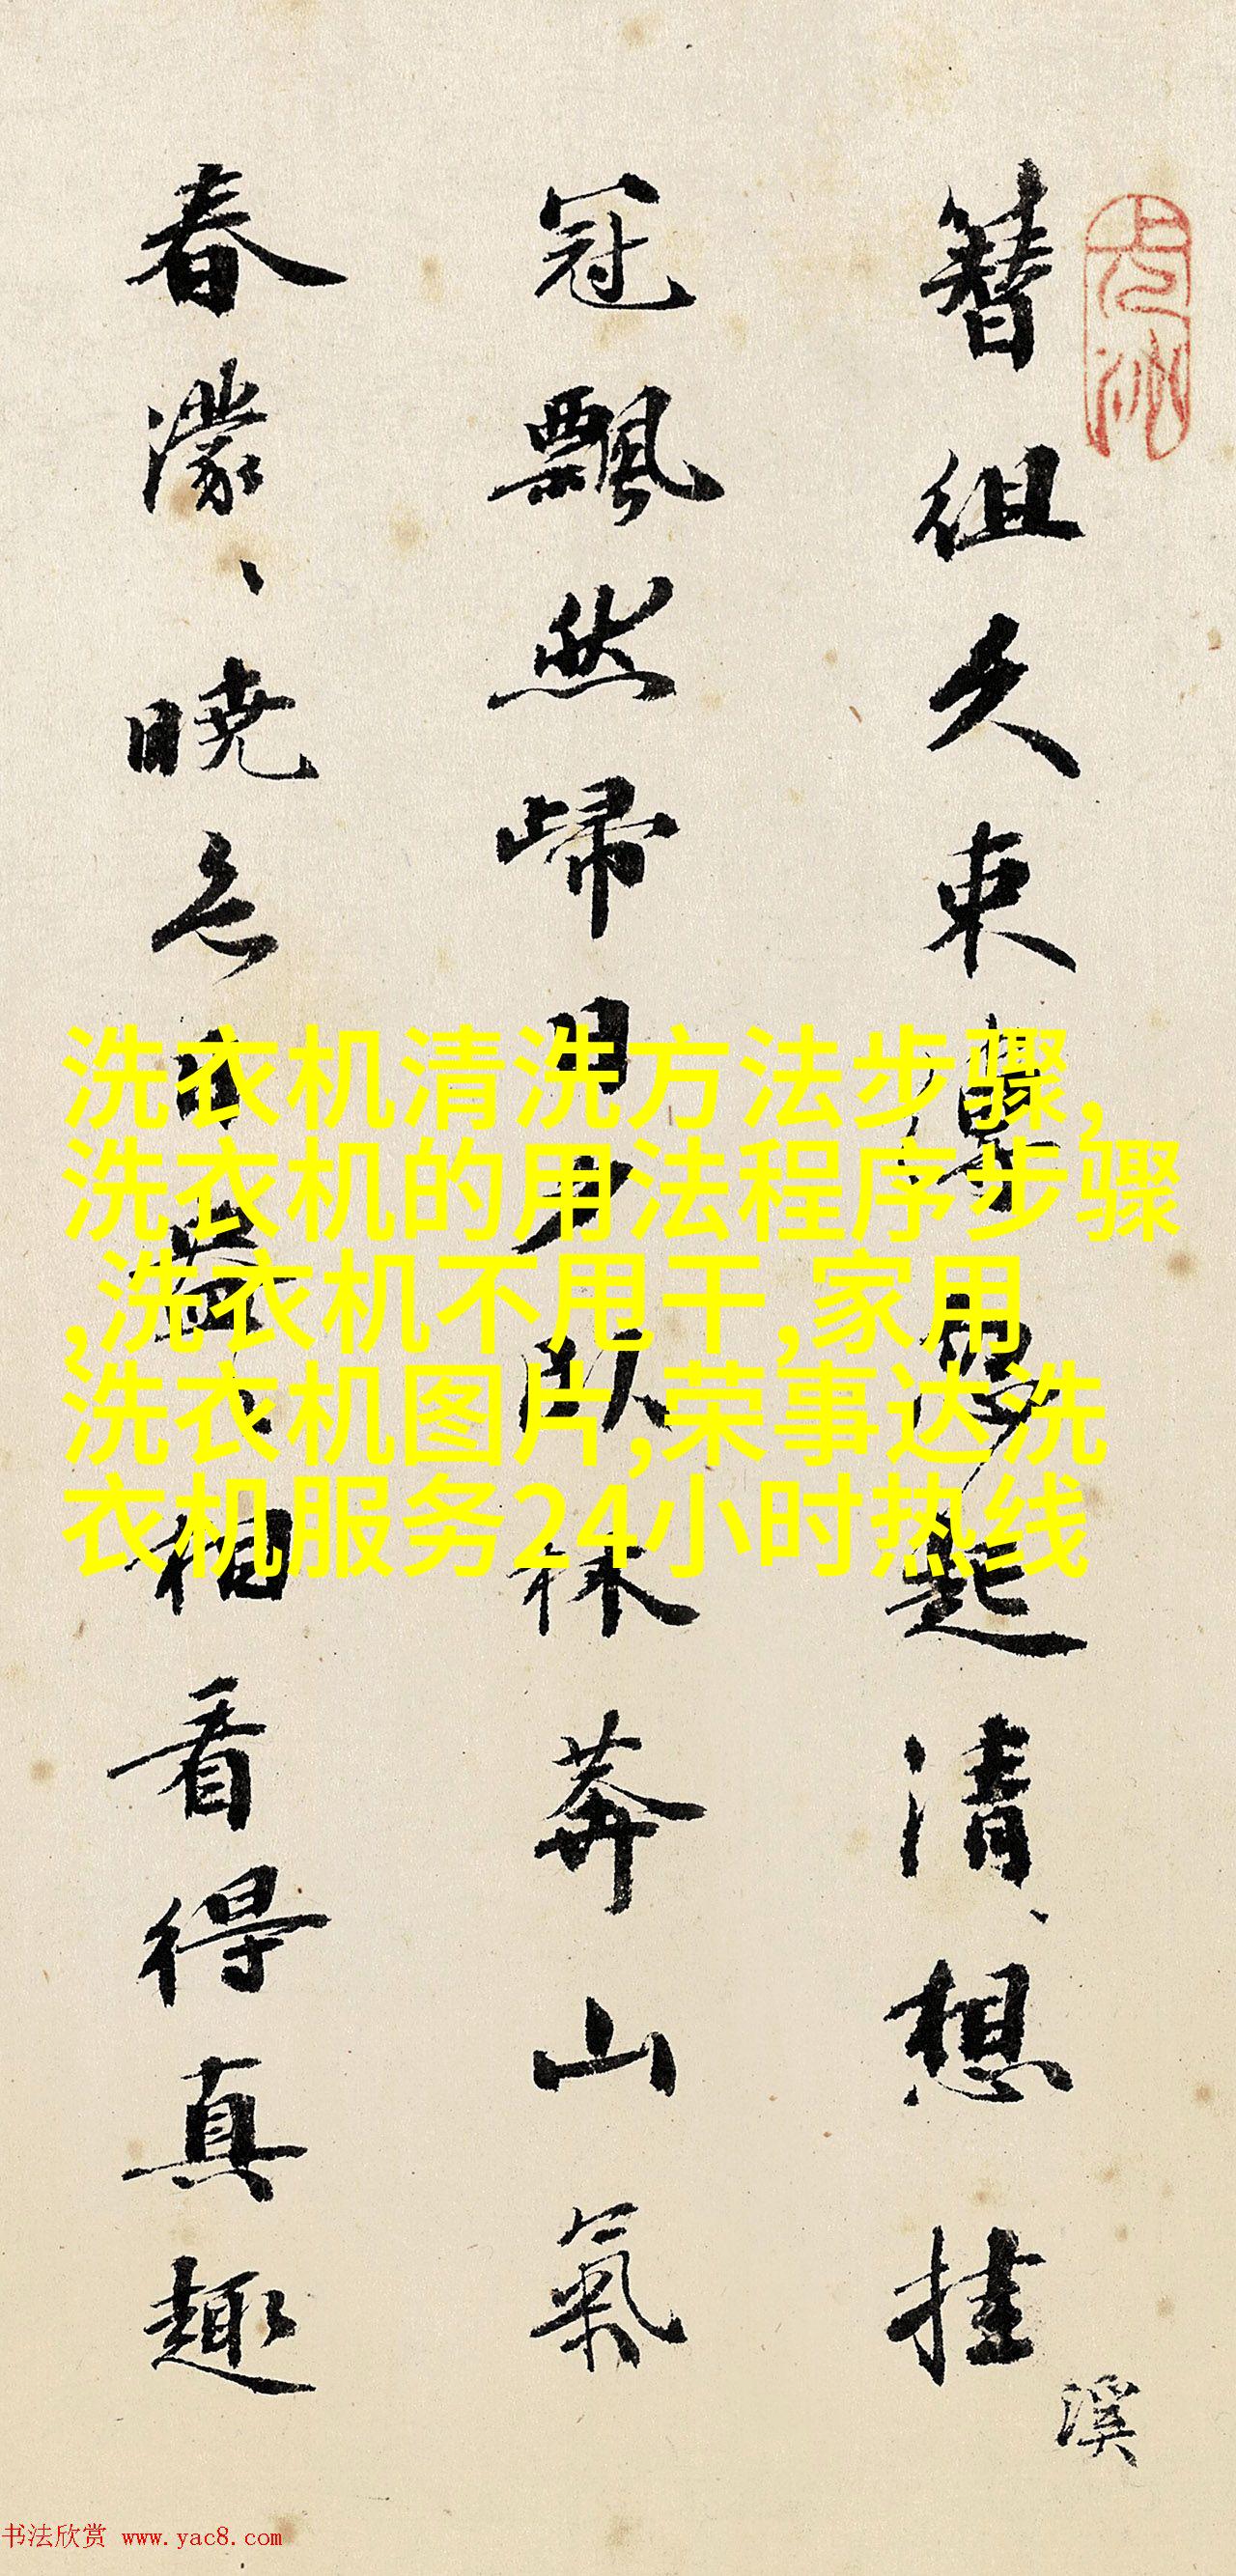 簪組久束縛夢起清、想挂
溪
冠飄然歸日夕臥林莽山氣
春濛、曉色日盎、相看得真趣
洗衣机清洗方法步骤,
洗衣机的用法程序步骤
,洗衣机不甩干,家用
洗衣机图片,荣事达洗
衣机服务24小时热线
书法欣赏 www.yac8.com